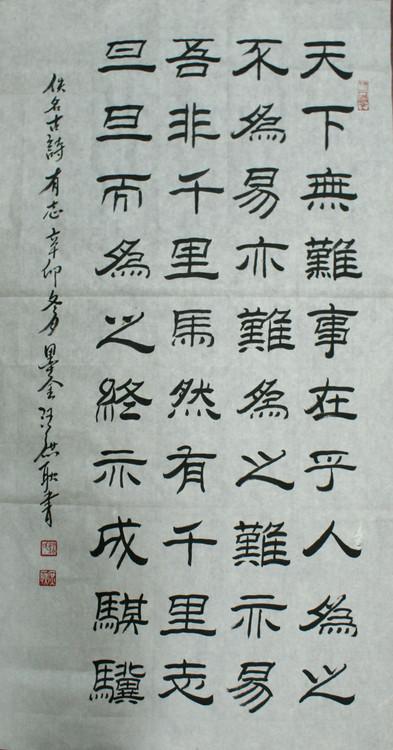 天下無難事在乎人為之
不為易亦難為之難亦易
吾非千里馬然有千里志
旦旦而為之終亦成騏驥
佚名古詩 有志 辛卯冬 墨金 書